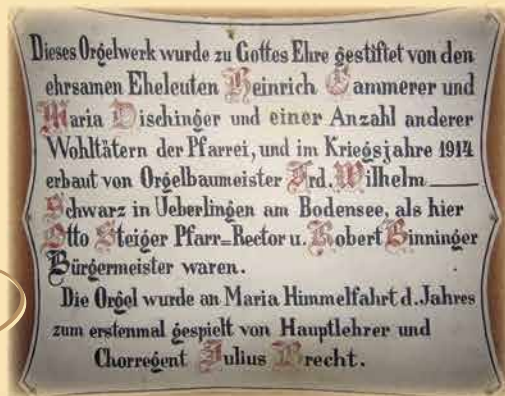 Dieses Orgelwerk wurde zu Gottes Ehre gestiftet von den
ehrsamen Eheleuten Heinrich Cammerer und
Maria Dischinger und einer Anzahl anderer
Wohltätern der Pfarrei, und im Kriegsjahre 1914
erbaut von Orgelbaumeister Frd. Wilhelm
Schwarz in Ueberlingen am Bodensee, als hier
Otto Steiger Pfarr=Rector u. Robert Binninger
Bürgermeister waren.
Die Orgel wurde an Maria Himmelfahrt d. Jahres
zum erstenmal gespielt von Hauptlehrer und
Chorregent Julius Brecht.